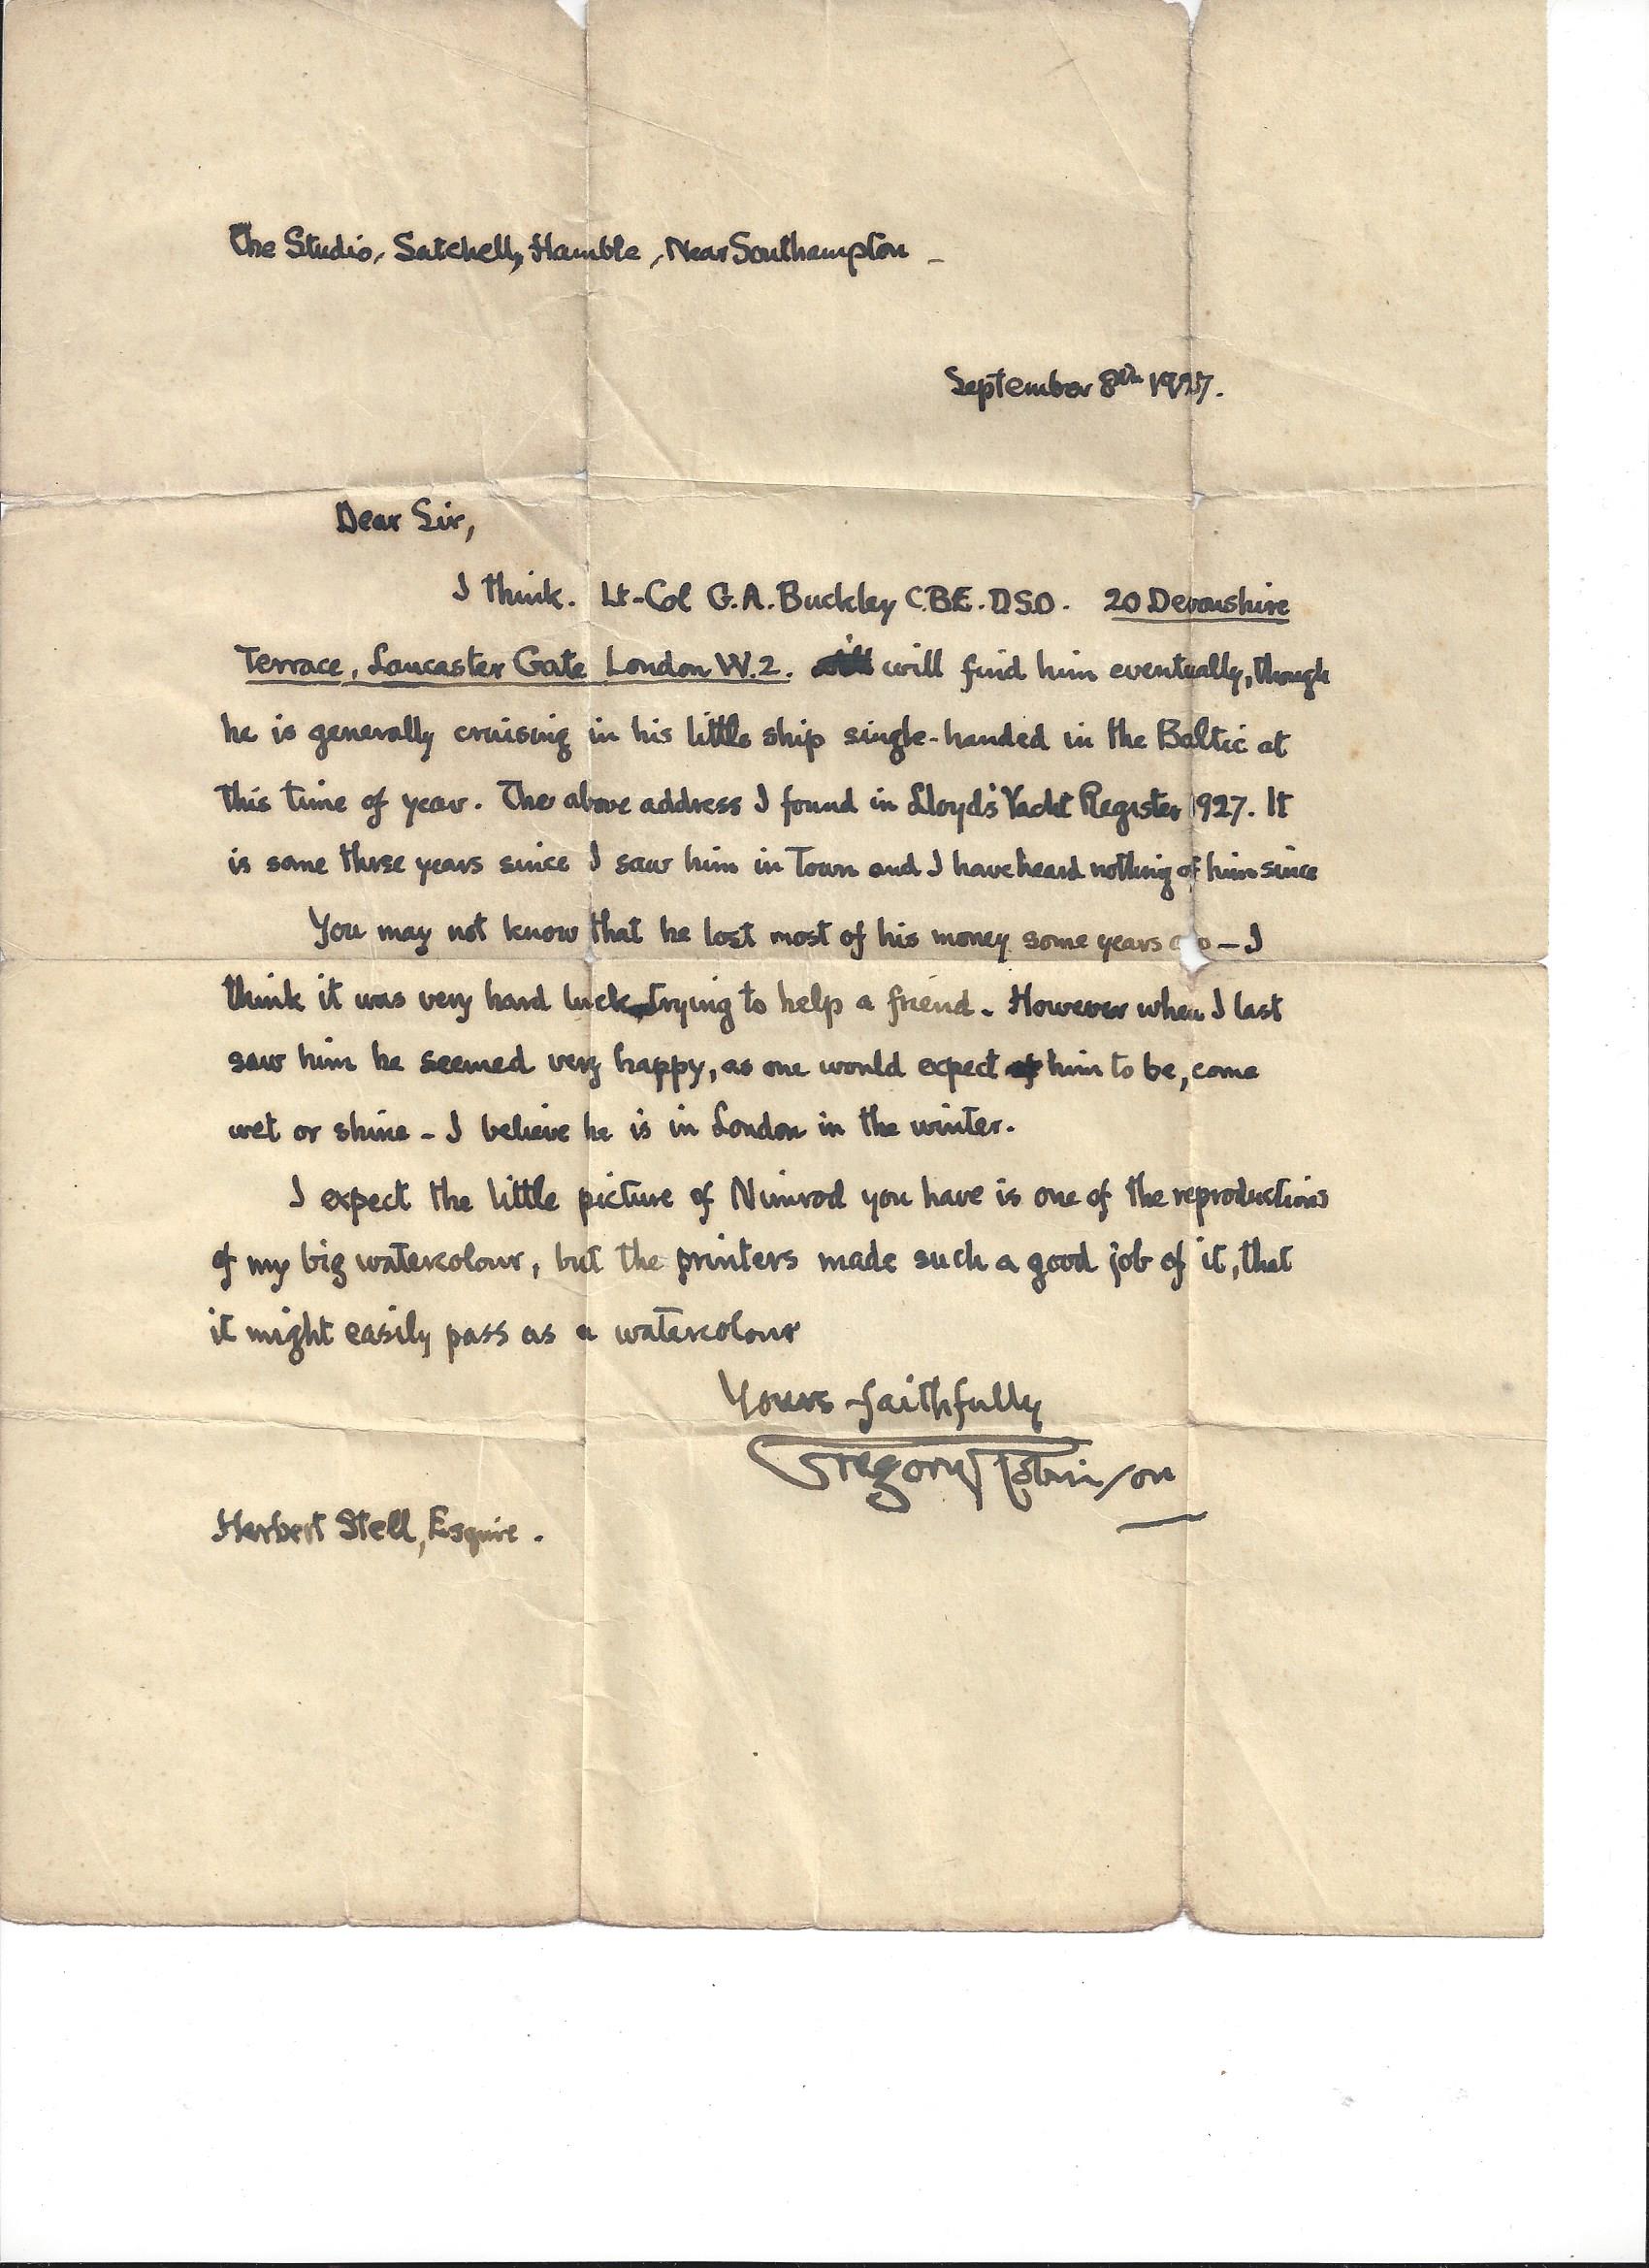 The Studio, Satchell, Hamble, Near Southampton -
September 8th 1927.
Dear Sir,
I think. Lt-Col G.A. Buckley C.B.E. D.S.O. 20 Devonshire
Terrace, Lancaster Gate London W.2. will find him eventually, though
he is generally cruising in his little ship single-handed in the Baltic at
this time of year. The above address I found in Lloyd's Yacht Register 1927. It
is some three years since I saw him in Town and I have heard nothing of him since
You may not know that he lost most of his money some years ago - I
think it was very hard luck trying to help a friend. However when I last
saw him he seemed very happy, as one would expect him to be, come
wet or shine - I believe he is in London in the winter.
I expect the little picture of Nimrod you have is one of the reproductions
of my big watercolour, but the printers made such a good job of it, that
it might easily pass as a watercolour
Yours faithfully
Gregory Robinson
Herbert Stell, Esquire.